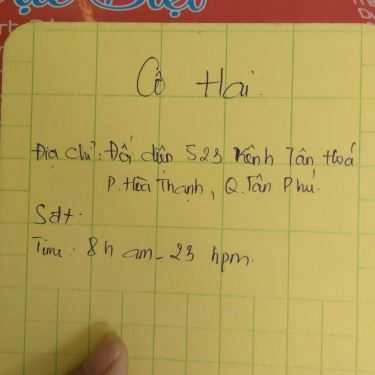 Đặc Biệt
Cô Hai
Địa chỉ: Đối diện 523 Kênh Tân Hoá
P. Hòa Thạnh, Q. Tân Phú.
Sđt.
Time. 8h am - 23 hpm.